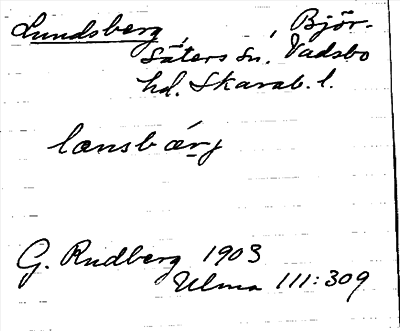 Lundsberg, , Björ-
säters sn. Vadsbo
hd. Skarab. l.
lænsbærj
G. Rudberg 1903
Ulma 111:309